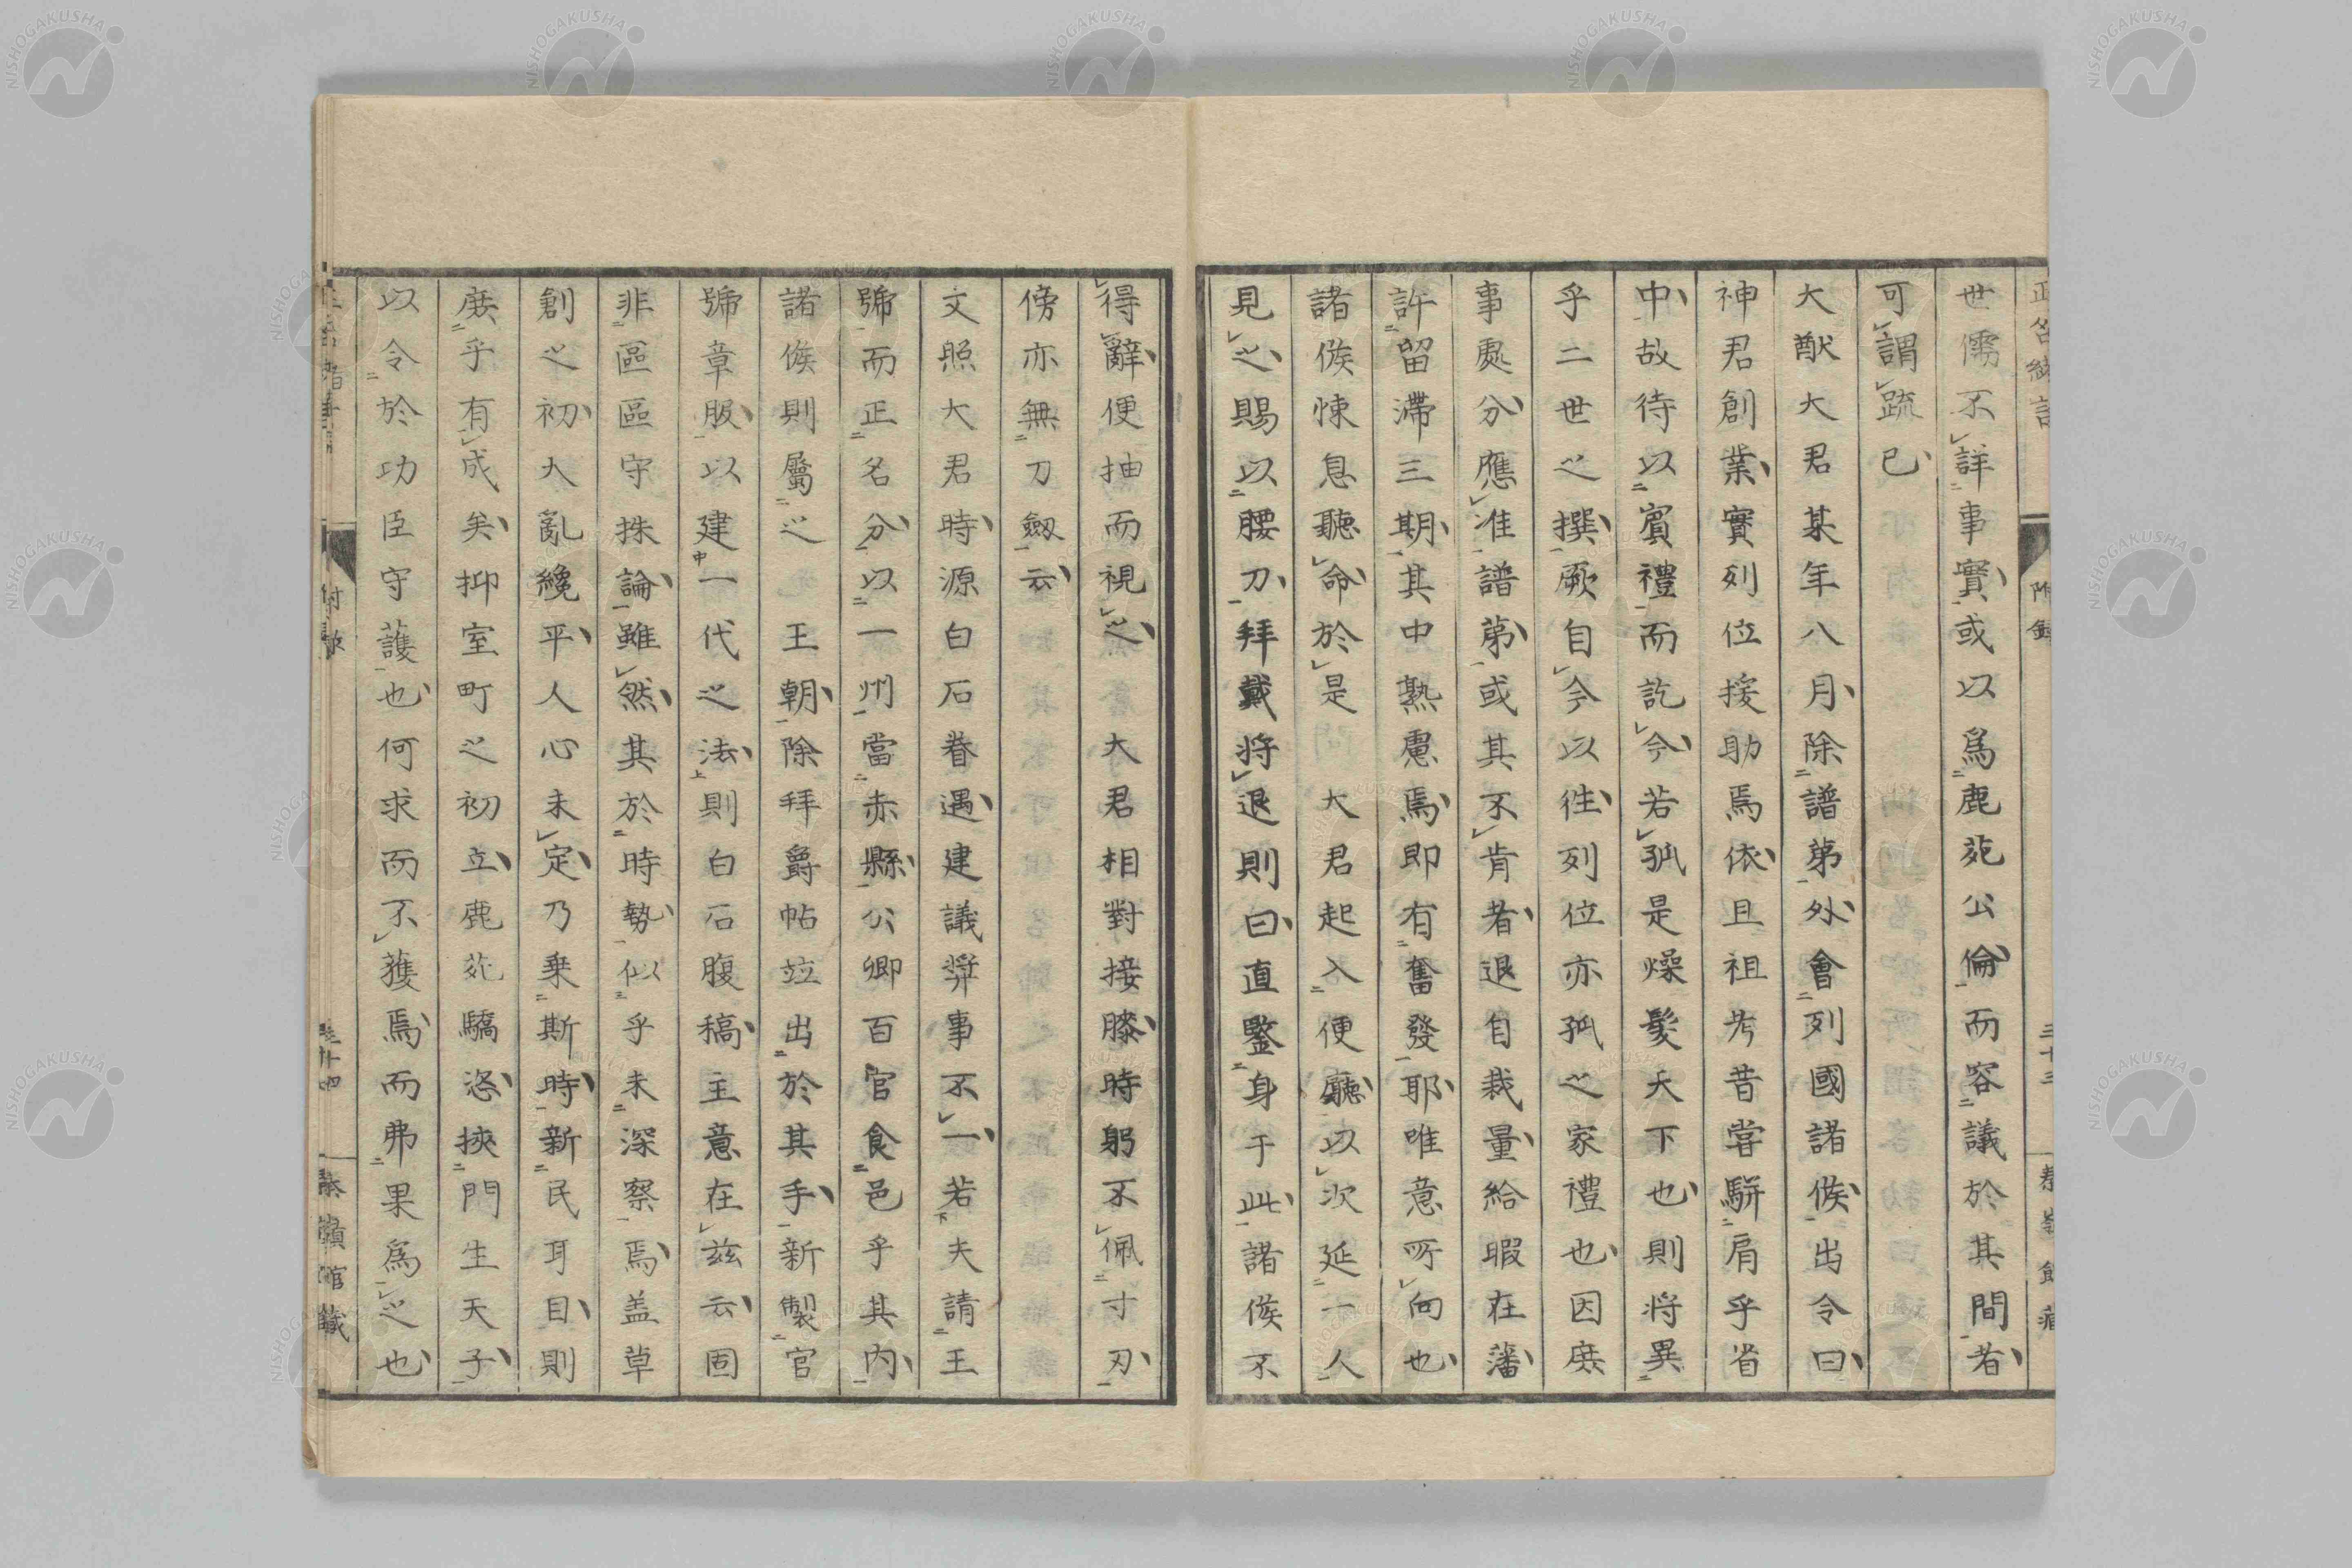 世儒不詳事實或以爲鹿苑公倫而容議於其間者
可謂疏已
大猷大君某年八月除譜第外會列國諸侯出令曰
神君創業實列位援助焉依且祖考昔嘗駢肩乎省
中故待以賓禮而訖今若孤是燥髮天下也則將異
乎二世之撰厥自今以徃列位亦孤之家禮也因庶
事處分應准譜第或其不肯者退自裁量給暇在藩
許留滯三期其中熟慮焉即有奮發耶唯意所向也
諸侯悚息聽命於是 大君起入便廳以次延一人
見之賜以腰刀拜戴將退則曰直鑒身于此諸侯不
得辭便抽而視之 大君相對接膝時躬不佩寸刃
傍亦無刀劔云
文照大君時源白石眷遇建議弉事不一若夫請王
號而正名分以一州當赤縣公卿百官食邑乎其内
諸侯則屬之 王朝除拜爵帖竝出於其手新製官
號章服以建一代之法則白石腹稿主意在茲云固
非區區守株論雖然其於時勢似乎未深察焉盖草
創之初大亂纔平人心未定乃乗斯時新民耳目則
庶乎有成矣抑室町之初立鹿苑驕恣挾門生天子
以令於功臣守護也何求而不獲焉而弗果爲之也
附錄
三十三